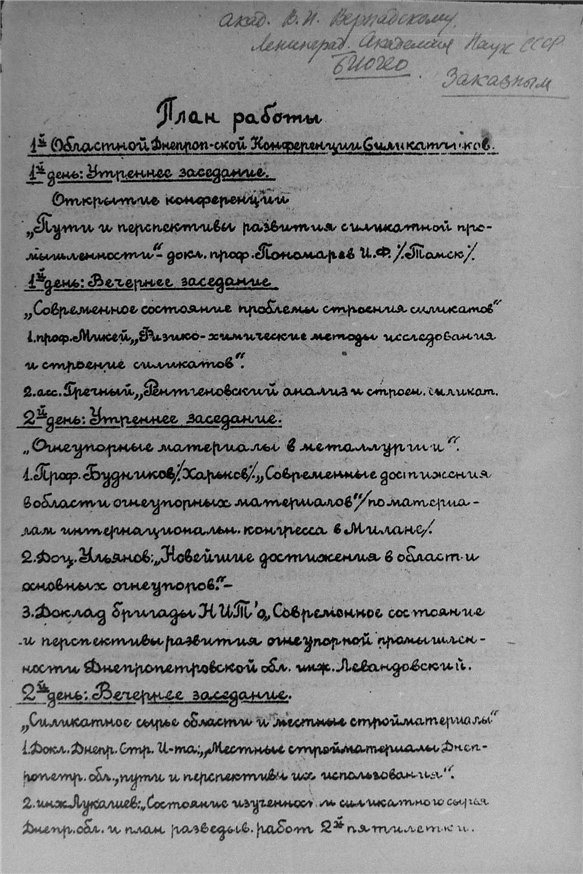 акад. В.И. Вернадскому.
Ленинград. Академия Наук СССР
БИОГЕО
Заказным
План работы
1й Областной Днепроп-ской Конференции Силикатчиков.
1й день: Утреннее заседание.
Открытие конференции
„Пути и перспективы развития силикатной про-
мышленности“- докл. проф. Пономарев И.Ф. /Томск/.
1й день: Вечернее заседание
„Современное состояние проблемы строения силикатов“
1. проф. Микей „Физико-химические методы исследования
и строение силикатов“.
2. асс. Гречный „Рентгеновский анализ и строен. силикат.
2й день: Утреннее заседание.
„Огнеупорные материалы в металлургии“.
1. Проф. Будников /Харьков/. „Современные достижения
в области огнеупорных материалов“ /по материа-
лам интернациональн. конгресса в Милане/.
2. Доц. Ульянов: „Новейшие достижения в области
основных огнеупоров.“-
3. Доклад бригады НИТ'а „Современное состояние
и перспективы развития огнеупорной промышлен-
ности Днепропетровской обл. инж. Левандовский.
2й день: Вечернее заседание.
„Силикатное сырье области и местные стройматериалы“
1. Докл. Днепр. Стр. И-та: „Местные стройматериалы Днеп-
ропетр. обл., пути и перспективы их использования“.
2. инж. Лукашев: „Состояние изученности силикатного сырья
Днепр. обл. и план разведыв. работ 2й пятилетки.